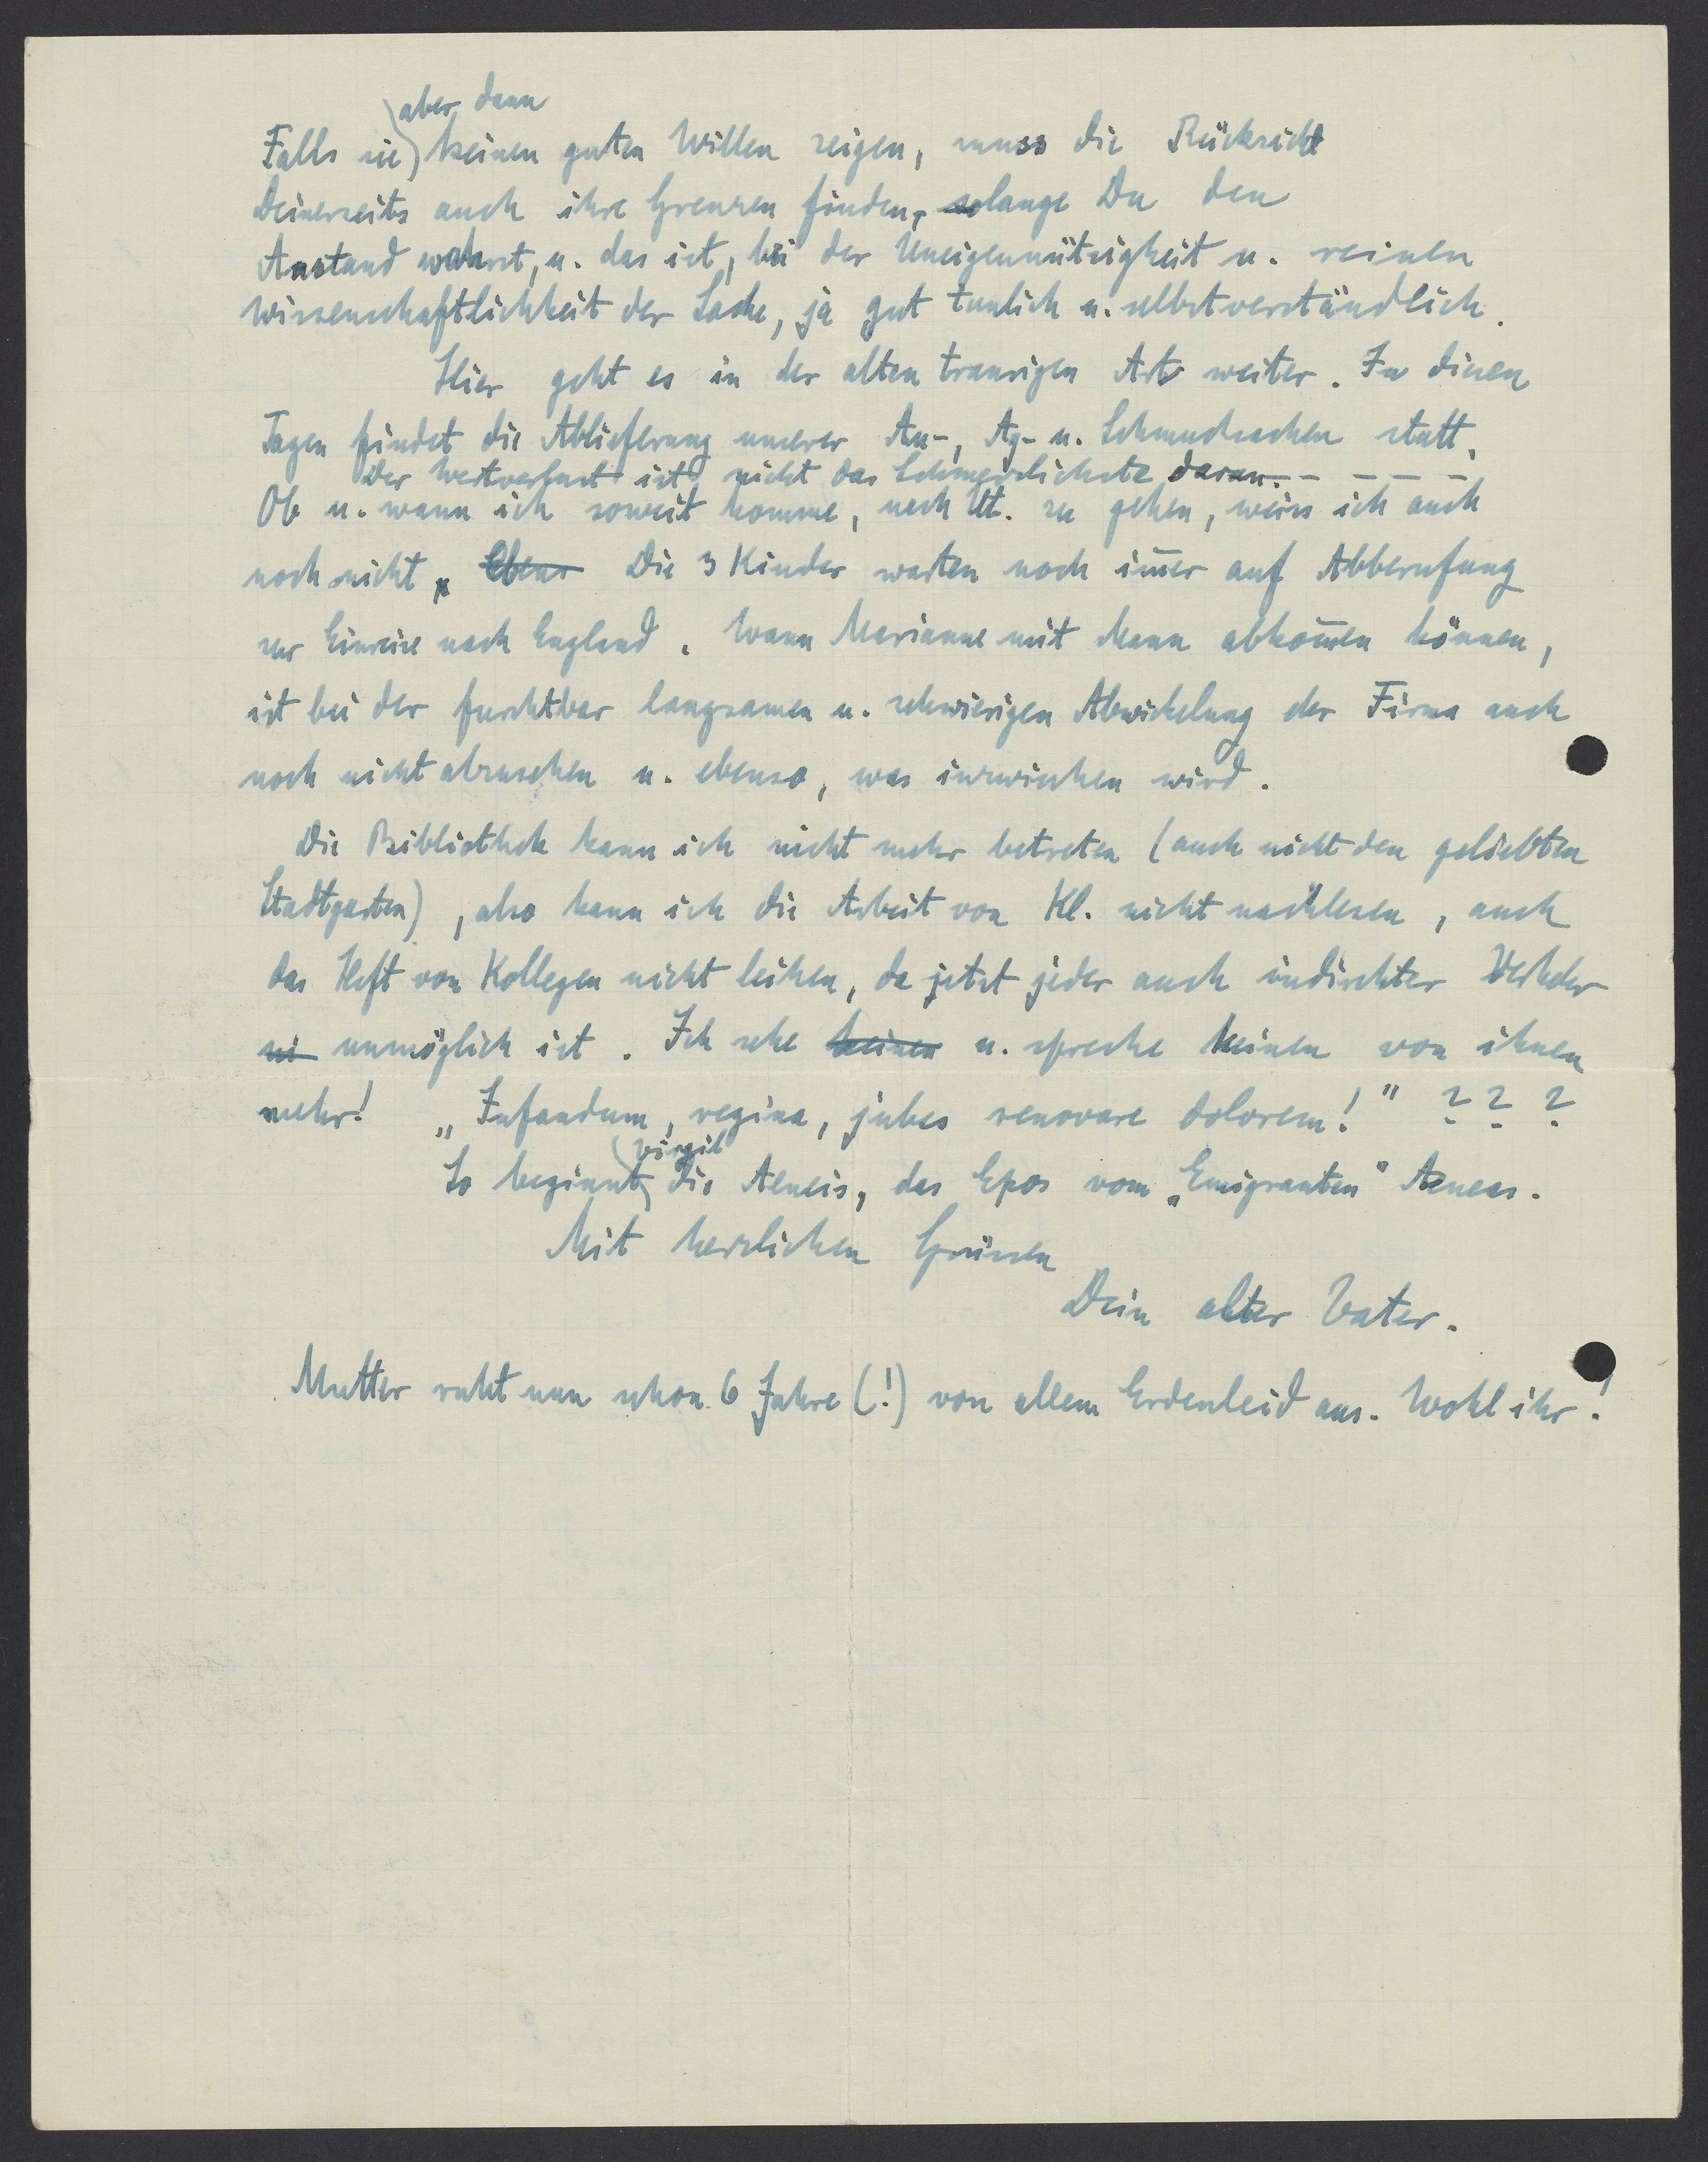 aber dann
Falls sie keinen guten Willen zeigen, muss die Rücksicht
Deinerseits auch ihre Grenzen finden, solange Du den
Anstand wahrst, u. das ist, bei der Uneigennützigkeit u. reinen
Wissenschaftlichkeit der Sache, ja gut tunlich u. selbstverständlich.
Hier geht es in der alten traurigen Art weiter. In diesen
Tagen findet die Ablieferung unserer Au-, Ag- u. Schmucksachen statt.
Der Wertverlust ist nicht das Schmerzlichste daran. - - - - -
Ob u. wann ich soweit komme, nach Ut. zu gehen, weiss ich auch
noch nicht. Die 3 Kinder warten noch im̅er auf Abberufung
zur Einreise nach England. Wann Marianne mit Mann abkom̅en können,
ist bei der furchtbar langsamen u. schwierigen Abwickelung der Firma auch
noch nicht abzusehen u. ebenso, was inzwischen wird.
Die Bibliothek kann ich nicht mehr betreten (auch nicht den geliebten
Stadtgarten), also kann ich die Arbeit von Kl. nicht nachlesen, auch
das Heft von Kollegen nicht leihen, da jetzt jeder auch indirekter Verkehr
ni unmöglich ist. Ich sehe keinen u. spreche keinen von ihnen
mehr! „Infandum, regina, jubes renovare dolorem!" ? ? ?
Virgil
So beginnt die Aeneis, das Epos vom „Emigranten" Aeneas.
Mit herzlichen Grüssen
Dein alter Vater.
Mutter ruht nun schon 6 Jahre (!) von allem Erdenleid aus. Wohl ihr!